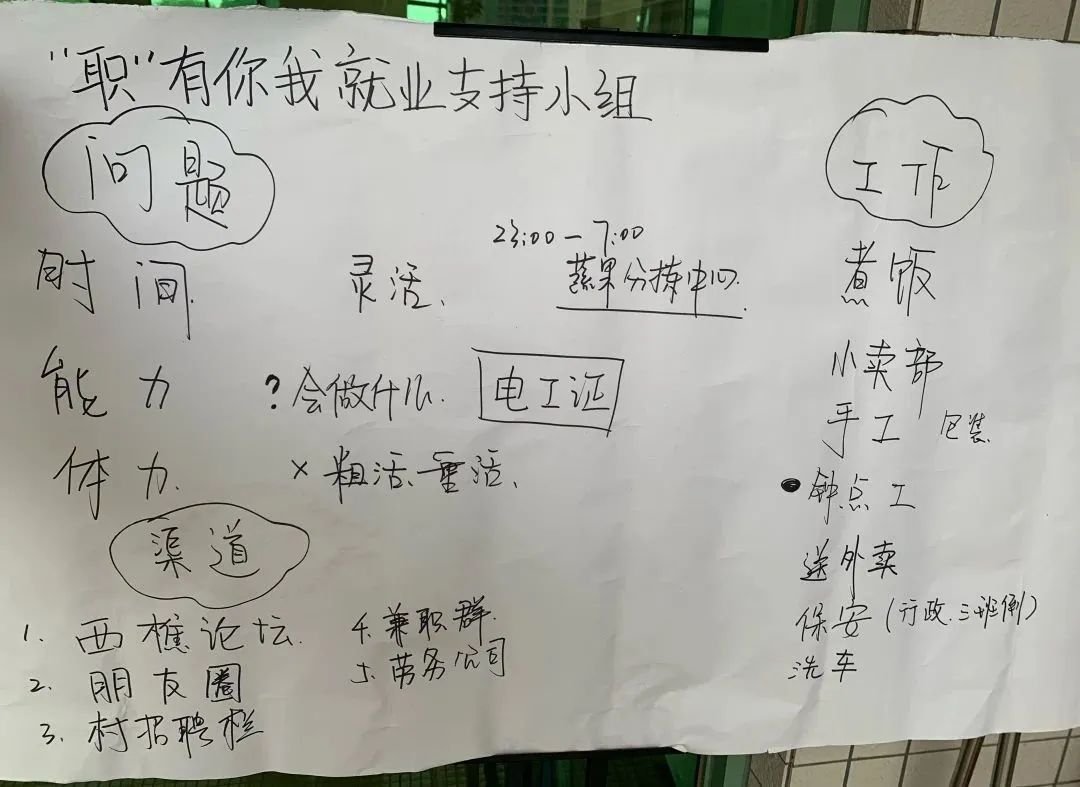 "职"有你我就业支持小组
问题
时间. 灵活、 23:00-7:00
蔬果分拣中心.
能力 ?会做什么. 电工证
体力. ×粗活、重活、
渠道
1. 西樵论坛.
2. 朋友圈
3. 村招聘栏
4. 兼职群.
5. 劳务公司
工作
煮饭
小卖部
手工 包装
●钟点工
送外卖
保安(行政.三班倒)
洗车